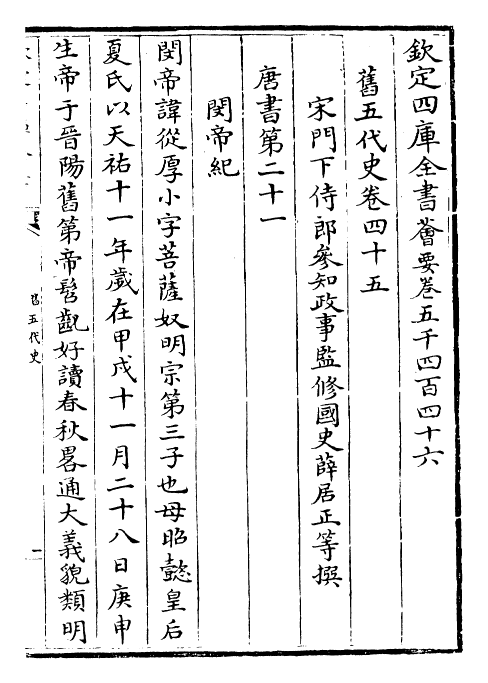 欽定四庫全書薈要卷五千四百四十六
舊五代史卷四十五
宋門下侍郎參知政事監修國史薛居正等撰
唐書第二十一
閔帝紀
閔帝諱從厚小字菩薩奴明宗第三子也母昭懿皇后
夏氏以天祐十一年歲在甲戌十一月二十八日庚申
生帝于晉陽舊第帝髫齔好讀春秋畧通大義貌類明
舊五代史
一